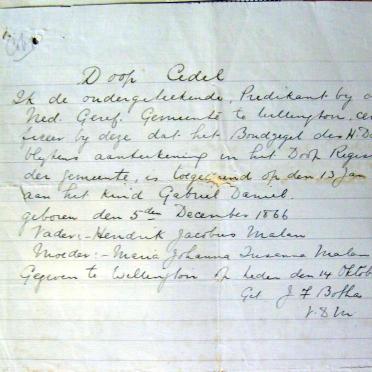 Doop Cedel
Ik de ondergeteekende, Predikant by d
Ned. Geref. Gemeente te Wellington, cer
ficeer by deze dat het Bondzegel des H. Do
blykens aanteekening in het Doop Regis
der gemeente, is toegediend op den 13 Jan
aan het kind Gabriel Daniel.
geboren den 5den December 1866
Vader:- Hendrik Jacobus Malan
Moeder:- Maria Johanna Susanna Malan
Gegeven te Wellington op heden den 14 Oktob
Get J F Botha
V. D M